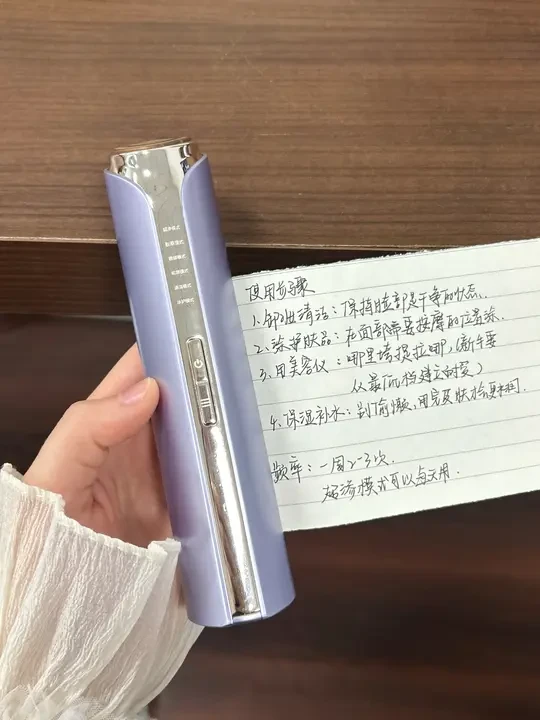 使用步骤
1.卸妆清洁:保持脸部是干净的状态.
2.涂护肤品:在面部需要按摩的位置涂.
3.用美容仪:哪里垮提拉哪,(新手要
从最低档建立耐受)
4.保湿补水:别偷懒,用完
频率:一周2-3次.
超渗模式可以每天用.